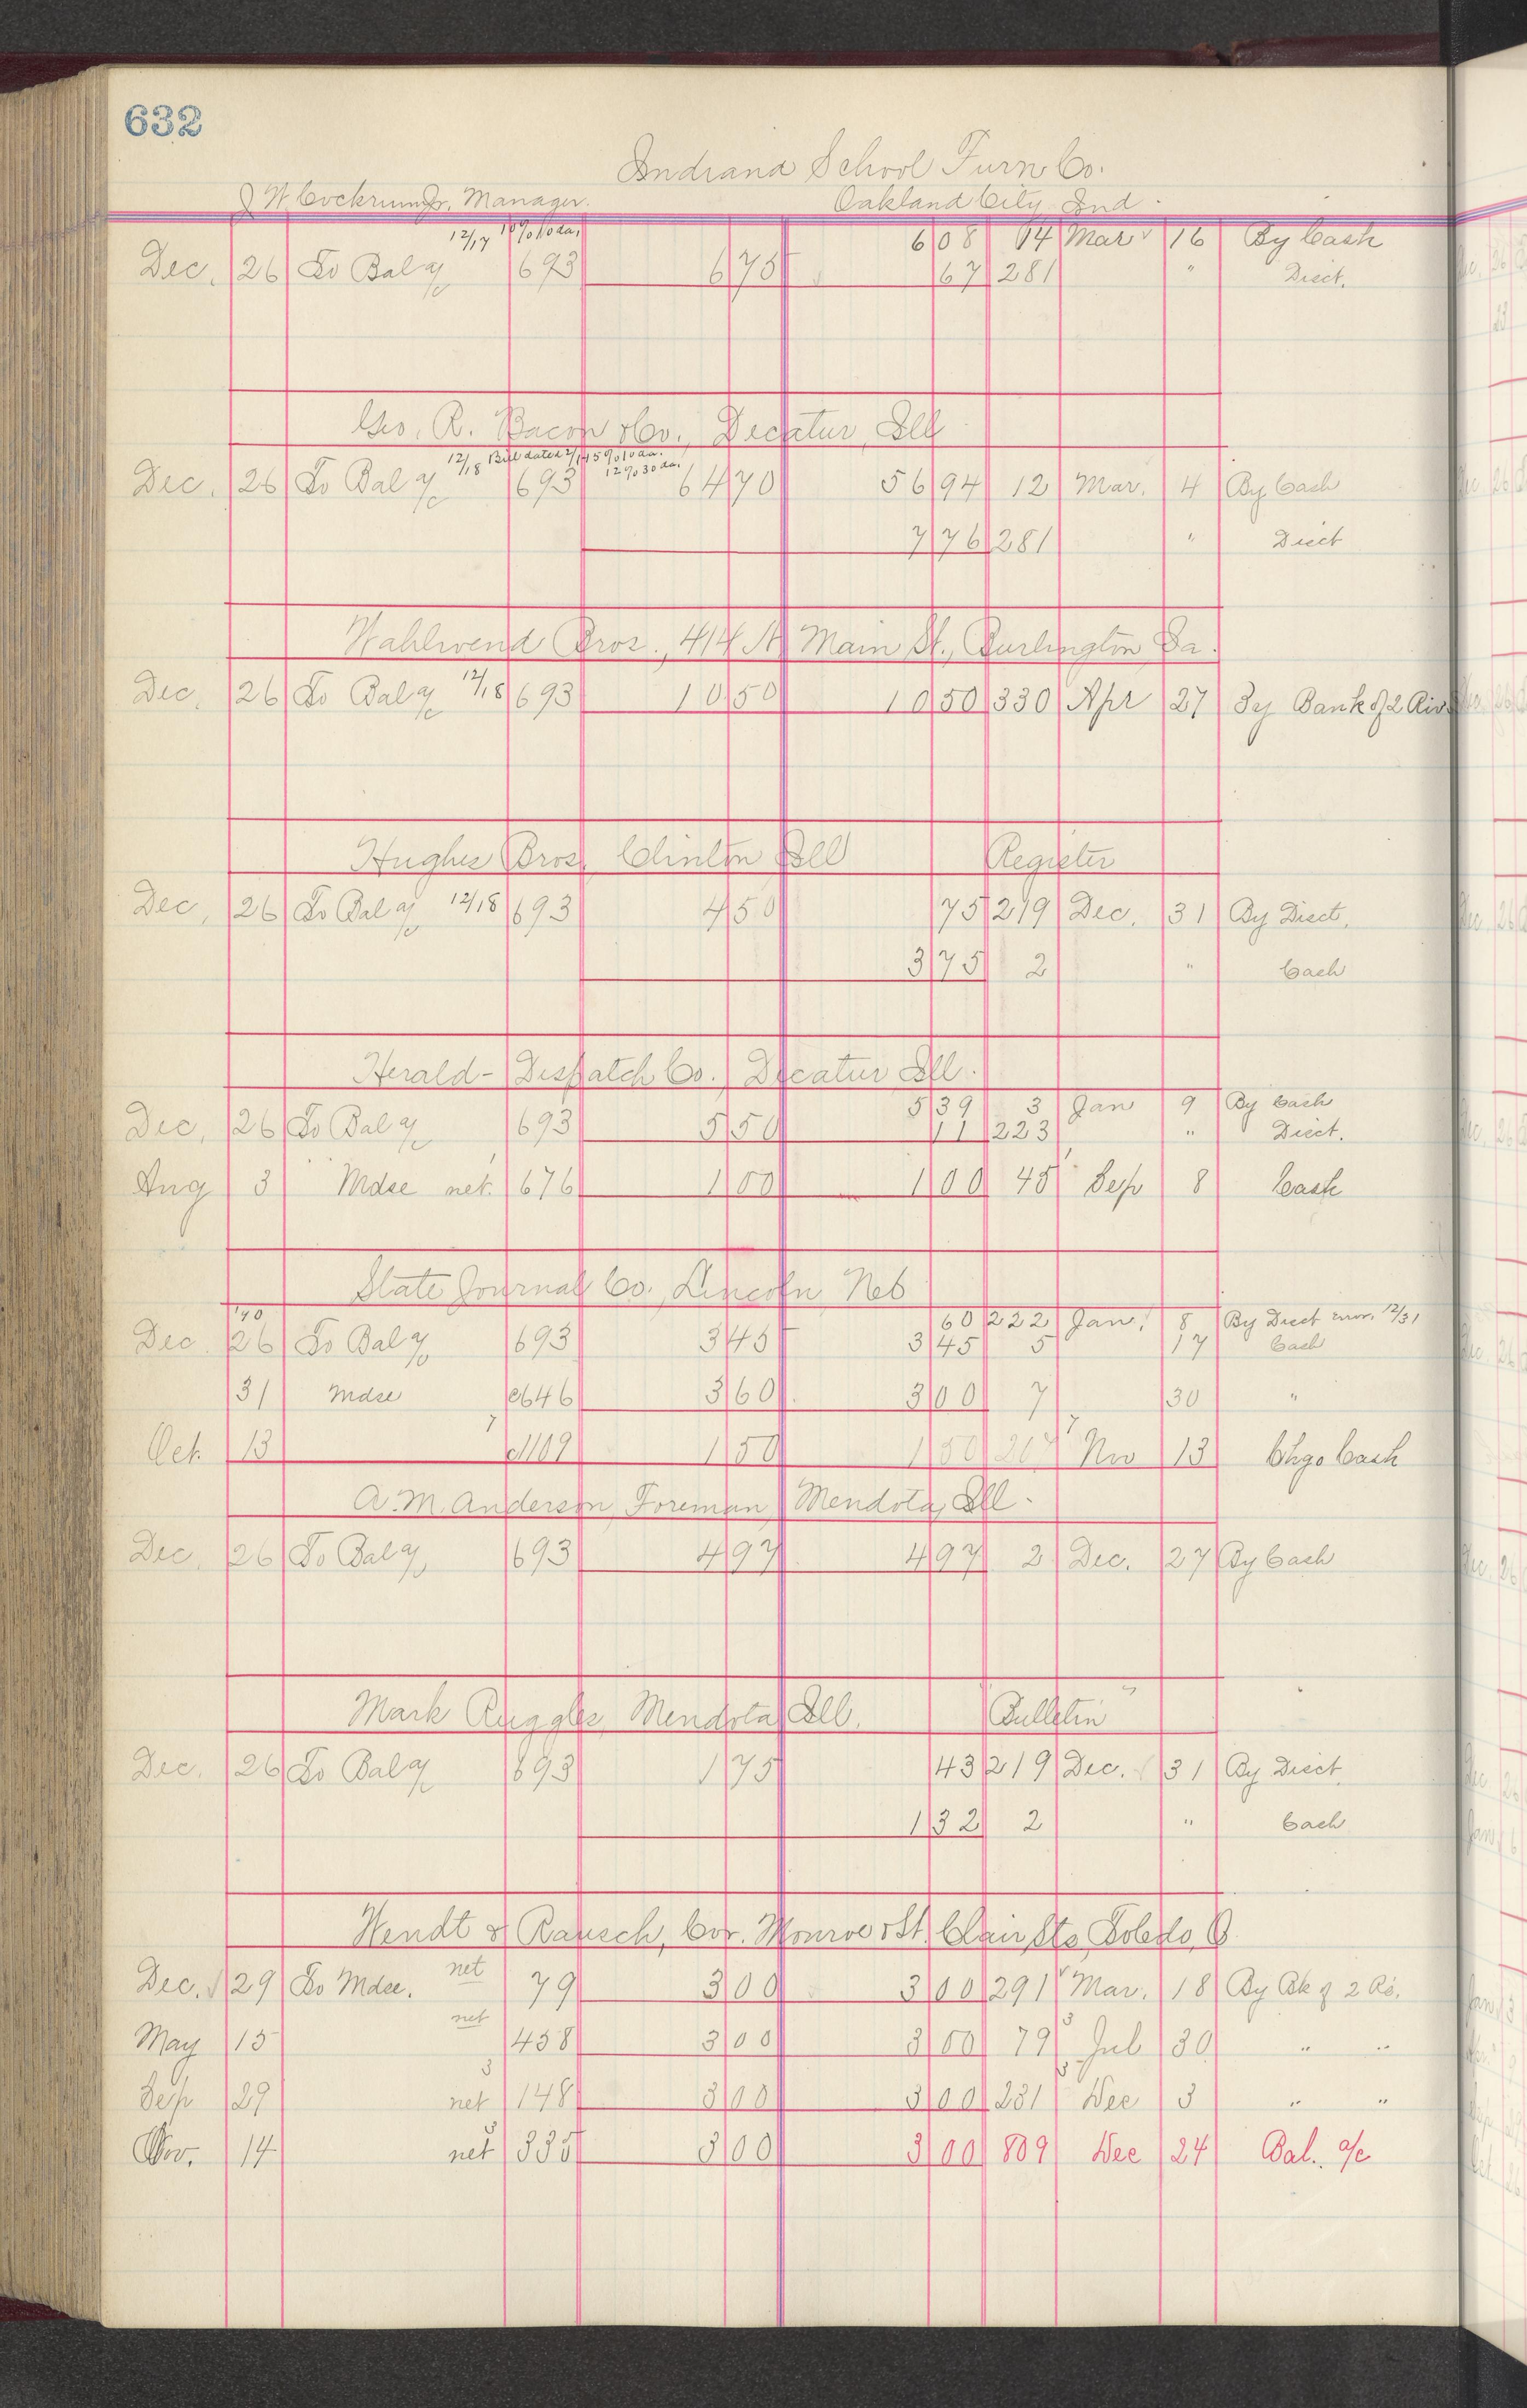 632
Indiana School Furn Co.
J W Cockrum Jr. Manager. Oakland City, Ind.
12/17 10% 10 da. 6 08 14 Mar 16 By Cash
Dec. 26 To Bal a/c 693 6 75 67 281 " Disct.
Geo. R. Bacon & Co., Decatur, Ill
12/18 Bill dated 2/1 15% 10 da.
12% 30 da.
Dec. 26 To Bal a/c 693 64 70 56 94 12 Mar. 4 By Cash
7 76 281 " Disct
Wahlwend Bros., 414 N Main St., Burlington Ia.
Dec. 26 To Bal a/c 12/18 693 10 50 10 50 330 Apr 27 By Bank of 2 Riv
Hughes Bros. Clinton Ill Register
Dec. 26 To Bal a/c 12/18 693 4 50 75 219 Dec. 31 By Disct.
3 75 2 " Cash
Herald-Dispatch Co., Decatur Ill.
5 39 3 Jan 9 By Cash
Dec. 26 To Bal a/c 693 5 50 11 223 " Disct.
Aug 3 Mdse net. 676 1 00 1 00 45 Sep 8 Cash
State Journal Co., Lincoln Neb
'90 60 222 Jan. 8 By Disct error 12/31
Dec. 26 To Bal a/c 693 3 45 3 45 5 17 Cash
31 Mdse c646 3 60 3 00 7 30 "
Oct. 13 7 c1109 1 50 1 50 207 7 Nov 13 Chgo Cash
A. M. Anderson, Foreman, Mendota, Ill.
Dec. 26 To Bal a/c 693 4 97 4 97 2 Dec. 27 By Cash
Mark Ruggles, Mendota Ill. "Bulletin"
Dec. 26 To Bal a/c 693 1 75 43 219 Dec. 31 By Disct.
1 32 2 " Cash
Wendt & Rausch, Cor. Monroe & St. Clair Sts Toledo, O
Dec. 29 To Mdse. net 79 3 00 3 00 291 Mar. 18 By Bk of 2 Rs.
May 15 net 458 3 00 3 00 79 3 Jul 30 " "
Sep 29 net 3 148 3 00 3 00 231 3 Dec 3 " "
Nov. 14 net 3 335 3 00 3 00 809 Dec 24 Bal. a/c